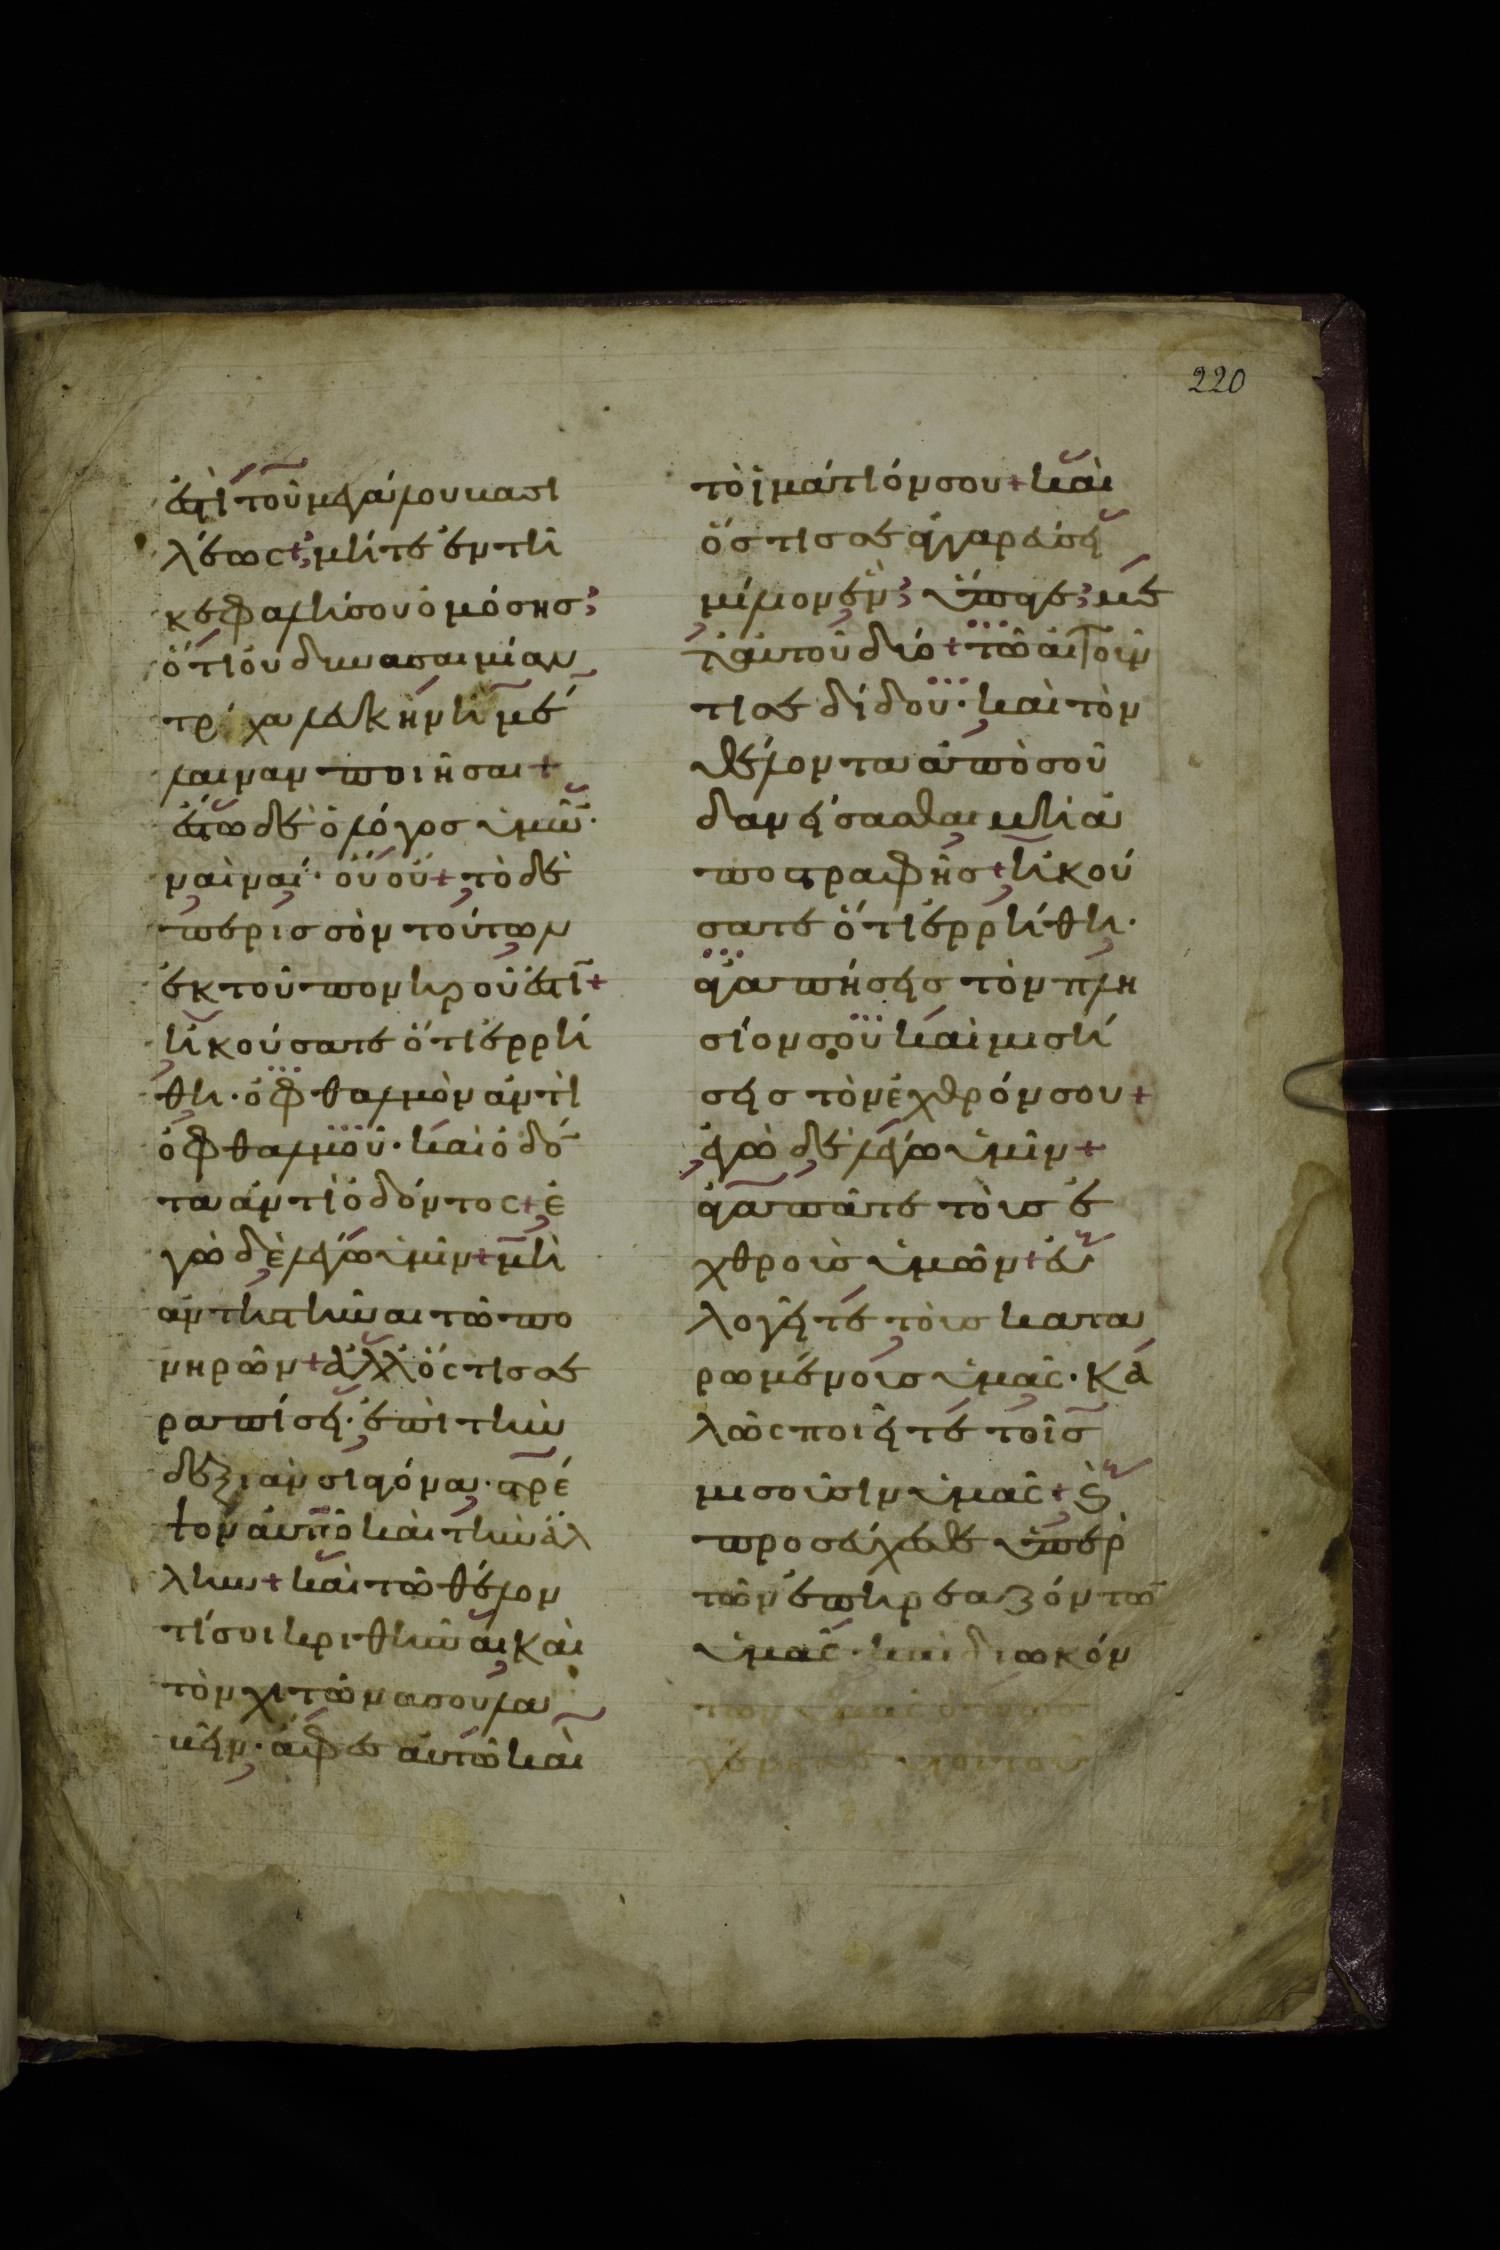 220
ἐστὶ τοῦ μεγάλου βασι
λέως + μήτε ἐν τῆ
κεφαλή σου ὀμόσης
ὅτι οὐ δύνασαι μίαν
τρίχα λευκὴν ἢ μέ
λαιναν ποιῆσαι +
ἔστω δὲ ὁ λόγος ὑμῶν·
ναὶ ναί· οὒ οὔ + τὸ δὲ
περισσὸν τούτων
ἐκ τοῦ πονηροῦ ἐστὶ +
ἠκούσατε ὅτι ἐρρή
θη· ὀφθαλμὸν ἀντὶ
ὀφθαλμοῦ· καὶ ὀδό
τα ἀντὶ ὀδόντος + ἐ
γὼ δὲ λέγω ὑμῖν + μὴ
ἀντιστῆναι τῶ πο
νηρῶν + ἀλλ ὅστις σε
ραπίσει· ἐπὶ τὴν
δεξιὰν σιαγόνα· στρέ
ψον αὐτῶ καὶ τὴν ἄλ
λην + καὶ τῶ θέλον
τί σοι κριθῆναι καὶ
τὸν χιτῶνα σου λα
βεῖν· ἄφες αὐτῶ καὶ
τὸ ἱμάτιόν σου + καὶ
ὅστις σε ἀγγαρεύσει
μίλιον ἓν ὕπαγε με
τ αὐτοῦ δύο + τῶ αἰτοῦν
τι σε δίδου· καὶ τὸν
θέλοντα ἀπὸ σοῦ
δανείσασθαι μὴ ἀ
ποστραφῆς + ἠκού
σατε ὅτι ἐρρήθη·
ἀγαπήσεις τὸν πλη
σίον σου καὶ μισή
σεις τὸν ἐχθρόν σου +
ἐγὼ δὲ λέγω ὑμῖν +
ἀγαπᾶτε τοὶς ἐ
χθροὶς ὑμῶν + εὐ
λογεῖτε τοὶς κατα
ρωμένοις ὑμᾶς· κα
λῶς ποιεῖτε τοῖς
μισοῦσιν ὑμᾶς + καὶ
προσεύχεσθε ὑπὲρ
τῶν ἐπηρεαζόντων
ὑμᾶς· καὶ διωκόν
των ὑμᾶς ὅπως
γένησθε υἱοὶ τοῦ